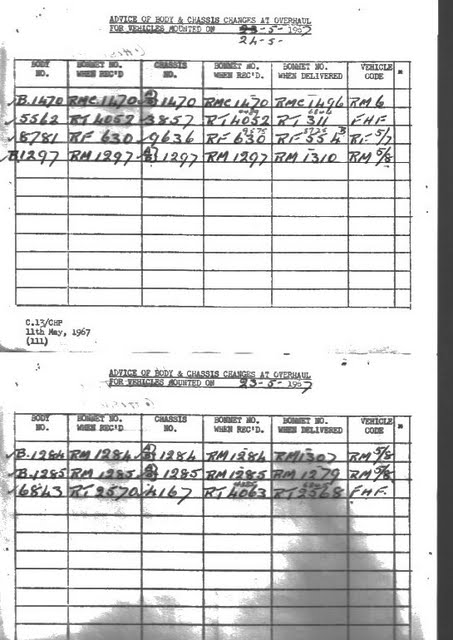 ADVICE OF BODY & CHASSIS CHANGES AT OVERHAUL
FOR VEHICLES MOUNTED ON 23-5-1967
24-5-
BODY NO. BONNET NO. WHEN REC'D CHASSIS NO. BONNET NO. WHEN REC'D. BONNET NO. WHEN DELIVERED VEHICLE CODE *
✓B.1470 RMC 1470 A/B 1470 RMC 1470 RMC 1496 RM 6
✓5562 RT 4052 3857 RT 4052 RT 311 FHF
✓8781 RF 630 9636 RF 630 RF 554 B RF 5/7
✓B1297 RM 1297 A/B 1297 RM 1297 RM 1310 RM 5/8
C.13/CHF
11th May, 1967
(111)
ADVICE OF BODY & CHASSIS CHANGES AT OVERHAUL
FOR VEHICLES MOUNTED ON 23-5-1967
BODY NO. BONNET NO. WHEN REC'D. CHASSIS NO. BONNET NO. WHEN REC'D. BONNET NO. WHEN DELIVERED VEHICLE CODE *
✓B.1284 RM 1284 A/B 1284 RM 1284 RM 1307 RM 5/8
✓B.1285 RM 1285 A/B 1285 RM 1285 RM 1279 RM 5/8
✓6843 RT 2570 4167 RT 4063 RT 2568 FHF.